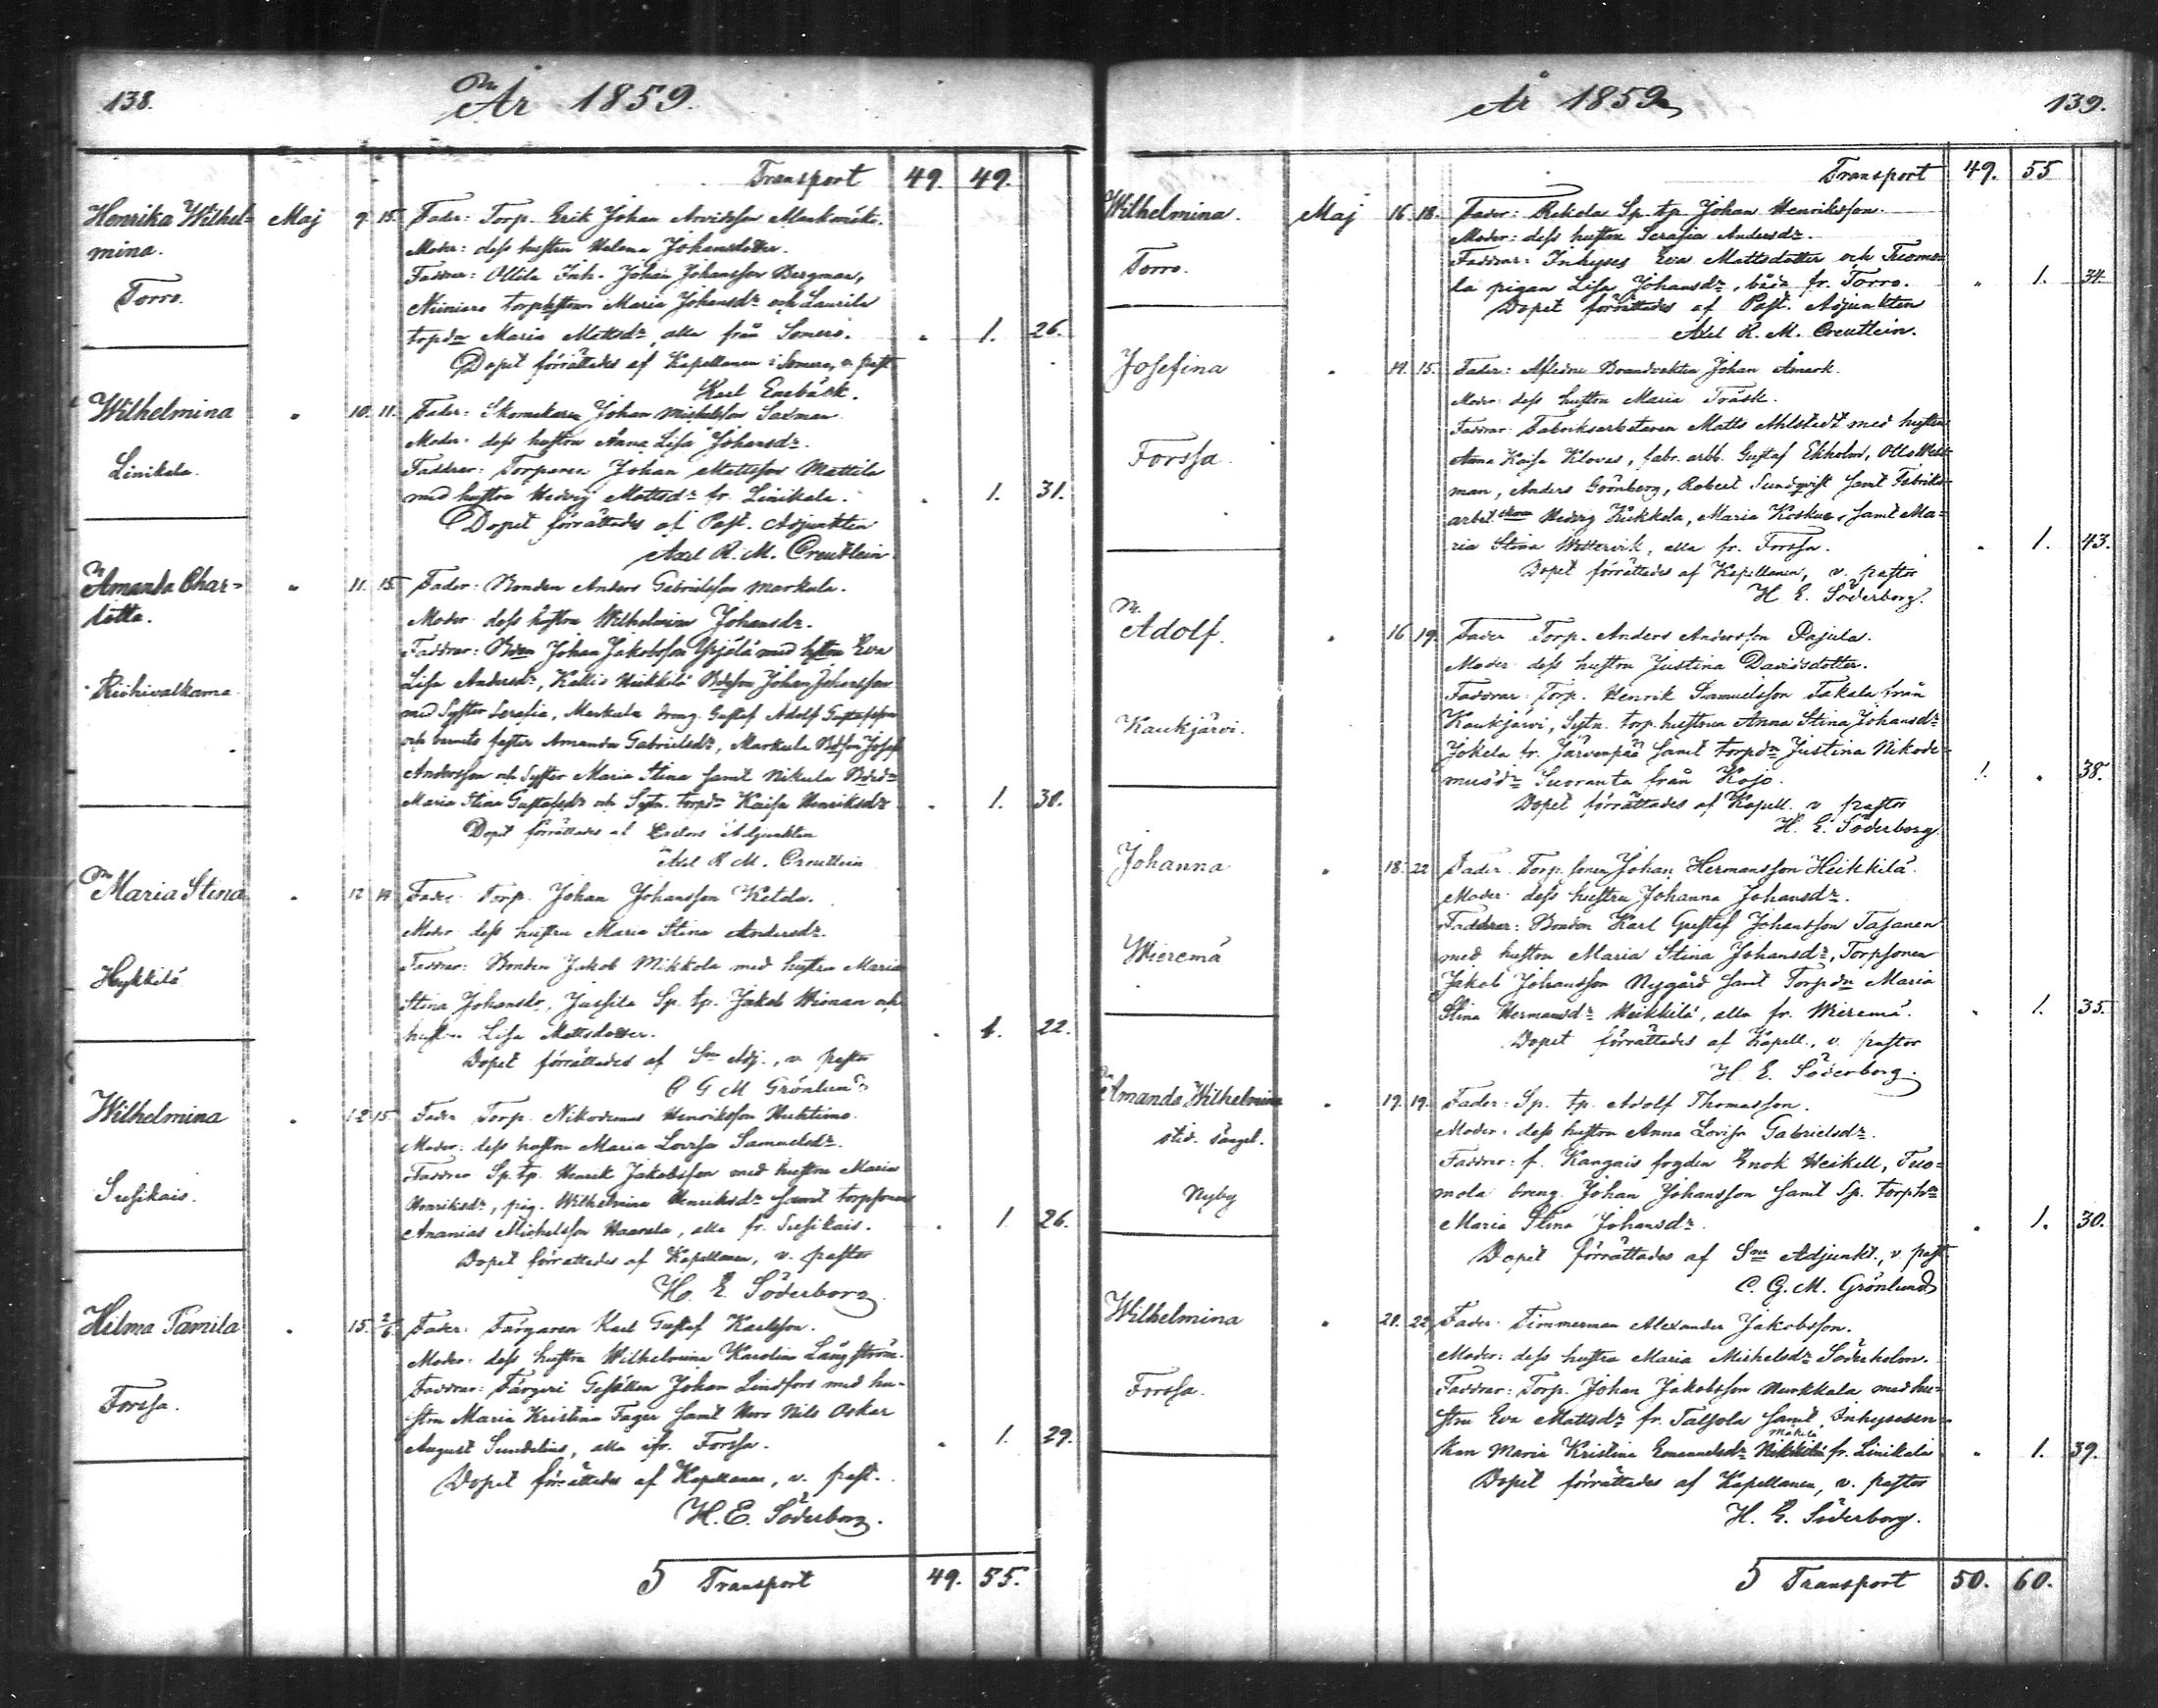 138.
År 1859.
Transport 49. 49.
Henrika Wilhel-
mina.
Torro.
Maj 9. 15.
Fader: Torp. Erik Johan Arvidsson
Moder: dess hustru Helena Johansdotter.
Faddrar: Ollila Inh. Johan Johansson Bergman,
Maria Johansdr och Laurila
torpdr Maria Mattsdr, alla från Somero. " 1. 26.
Dopet förrättades af Kapellanen i Somero, v. past.
Karl Enebäck.
Wilhelmina
Linikala.
" 10. 11.
Fader: Skomakaren Johan Michelsson Saxman
Moder: dess hustru Anna Lisa Johansdr.
Faddrar: Torparen Johan Mattsson Mattila
med hustru Hedvig Mattsdr fr. Linikala. " 1. 31.
Dopet förrättades af Past. Adjunkten
Axel R. M. Creutlein
Amanda Char-
lotta.
Riihivalkama
" 11. 15.
Fader: Bonden Anders Gabrielsson Markula.
Moder: dess hustru Wilhelmina Johansdr.
Faddrar: Bden Johan Jakobsson Yrjölä med hstru Eva
Lisa Andersdr, Kallio Heikkilä Bdeson Johan Johansson
med Syster Serafia, Markula dräng Gustaf Adolf Gustafsson
och barnets faster Amanda Gabrielsdr, Markula Bdson Josef
Andersson och Syster Maria Stina samt Nikula
Maria Stina Gustafsdr och Sytn. torpdr Kaisa Henriksdr " 1. 38.
Dopet förrättades af Pastors Adjunkten
Axel R. M. Creutlein
Maria Stina
Hykkilä
" 12 14
Fader: Torp. Johan Johansson Ketola.
Moder: dess hustru Maria Stina Andersdr.
Faddrar: Bonden Jakob Mikkola med hustru Maria
Stina Johansdr, Jussila Sp. tp. Jakob och
hustru Lisa Mattsdotter. " 1. 22.
Dopet förrättades af Sn Adj., v. pastor
C G M Grönlund
Wilhelmina
Susikais.
" 12 15.
Fader Torp. Nikodemus Henriksson Huhtimo.
Moder: dess hustru Maria Lovisa Samuelsdr.
Faddrar Sp. tp. Henrik Jakobsson med hustru Maria
Henriksdr, pig. Wilhelmina Henriksdr samt torpsonen
Ananias Michelsson Haavela, alla fr. Susikais. " 1 26.
Dopet förrättades af Kapellanen, v. pastor
H. E. Söderborg.
Hilma Tamila
Forssa.
" 15. 2/6
Fader: Färgaren Karl Gustaf Karlsson.
Moder: dess hustru Wilhelmina Karolina Långström.
Faddrar: Färgeri Gesällen Johan Lindfors med hu-
stru Maria Kristina Fager samt Herr Nils Oskar
August Sundelius, alla fr. Forssa. " 1. 29.
Dopet förrättades af Kapellanen, v. past.
H. E. Söderborg.
5 Transport 49. 55.
År 1859
139.
Transport 49. 55
Wilhelmina.
Torro.
Maj 16. 18.
Fader: Rekola Sp. tp. Johan Henriksson.
Moder: dess hustru Serafia Andersdr.
Faddrar: Inhyses Eva Mattsdotter och Tuomo-
la pigan Lisa Johansdr, båda fr. Torro. " 1. 34.
Dopet förrättades af Past. Adjunkten
Axel R. M. Creutlein.
Josefina
Forssa.
" 14 15.
Fader: Afledne Brandvakten Johan Åmark.
Moder: dess hustru Maria Träsk.
Faddrar: Fabriksarbetaren Matts Ahlstedt med hustru
Anna Kaisa Klovas, fabr. arbb. Gustaf Ekholm, Otto
man, Anders Grönberg, Robert Sundqvist samt Fabriks-
arbet.skorna Hedvig Kukkola, Maria Koskue samt Ma-
ria Stina Wettervik, alla fr. Forssa. " 1. 43.
Dopet förrättades af Kapellanen, v. pastor
H. E. Söderborg.
Adolf.
Kaukjärvi.
" 16 19.
Fader Torp. Anders Andersson Pajula.
Moder dess hustru Justina Davidsdotter.
Faddrar: Torp. Henrik Samuelsson Takala från
Kaukjärvi, Sytn. torp. hustrun Anna Stina Johansdr
Jokela fr. Järvenpää samt torpdn Justina Nikode-
musdr Suoranta från Kojo. 1. " 38.
Dopet förrättades af Kapell. v pastor
H. E. Söderborg
Johanna
Wieremä
" 18. 22
Fader: Torp. sonen Johan Hermansson Heikkilä.
Moder: dess hustru Johanna Johansdr.
Faddrar: Bonden Karl Gustaf Johansson Tasanen
med hustru Maria Stina Johansdr, Torpsonen
Jakob Johansson Nygård samt Torpdn Maria
Stina Hermansdr Heikkilä, alla fr. Wieremä. " 1. 35.
Dopet förrättades af Kapell., v. pastor
H. E. Söderborg.
Amanda Wilhelmina
Nyby
" 19. 19.
Fader: Sp. tp. Adolf Thomasson.
Moder: dess hustru Anna Lovisa Gabrielsdr.
Faddrar: f. Kangais fogden Enok Heikell, Tuo-
mola dreng Johan Johansson samt Sp.
Maria Stina Johansdr. " 1. 30.
Dopet förrättades af Sne Adjunkt., v. past.
C. G. M. Grönlund
Wilhelmina
Forssa.
" 21. 22.
Fader: Timmerman Alexander Jakobsson.
Moder: dess hustru Maria Michelsdr Söderholm.
Faddrar: Torp. Johan Jakobsson Nurkkala med hu-
stru Eva Mattsdr fr. Talsola samt Inhysesen-
kan Maria Kristina Emanuelsdr Mäkelä fr. Linikala " 1. 39.
Dopet förrättades af Kapellanen, v. pastor
H. E. Söderborg.
5 Transport 50. 60.